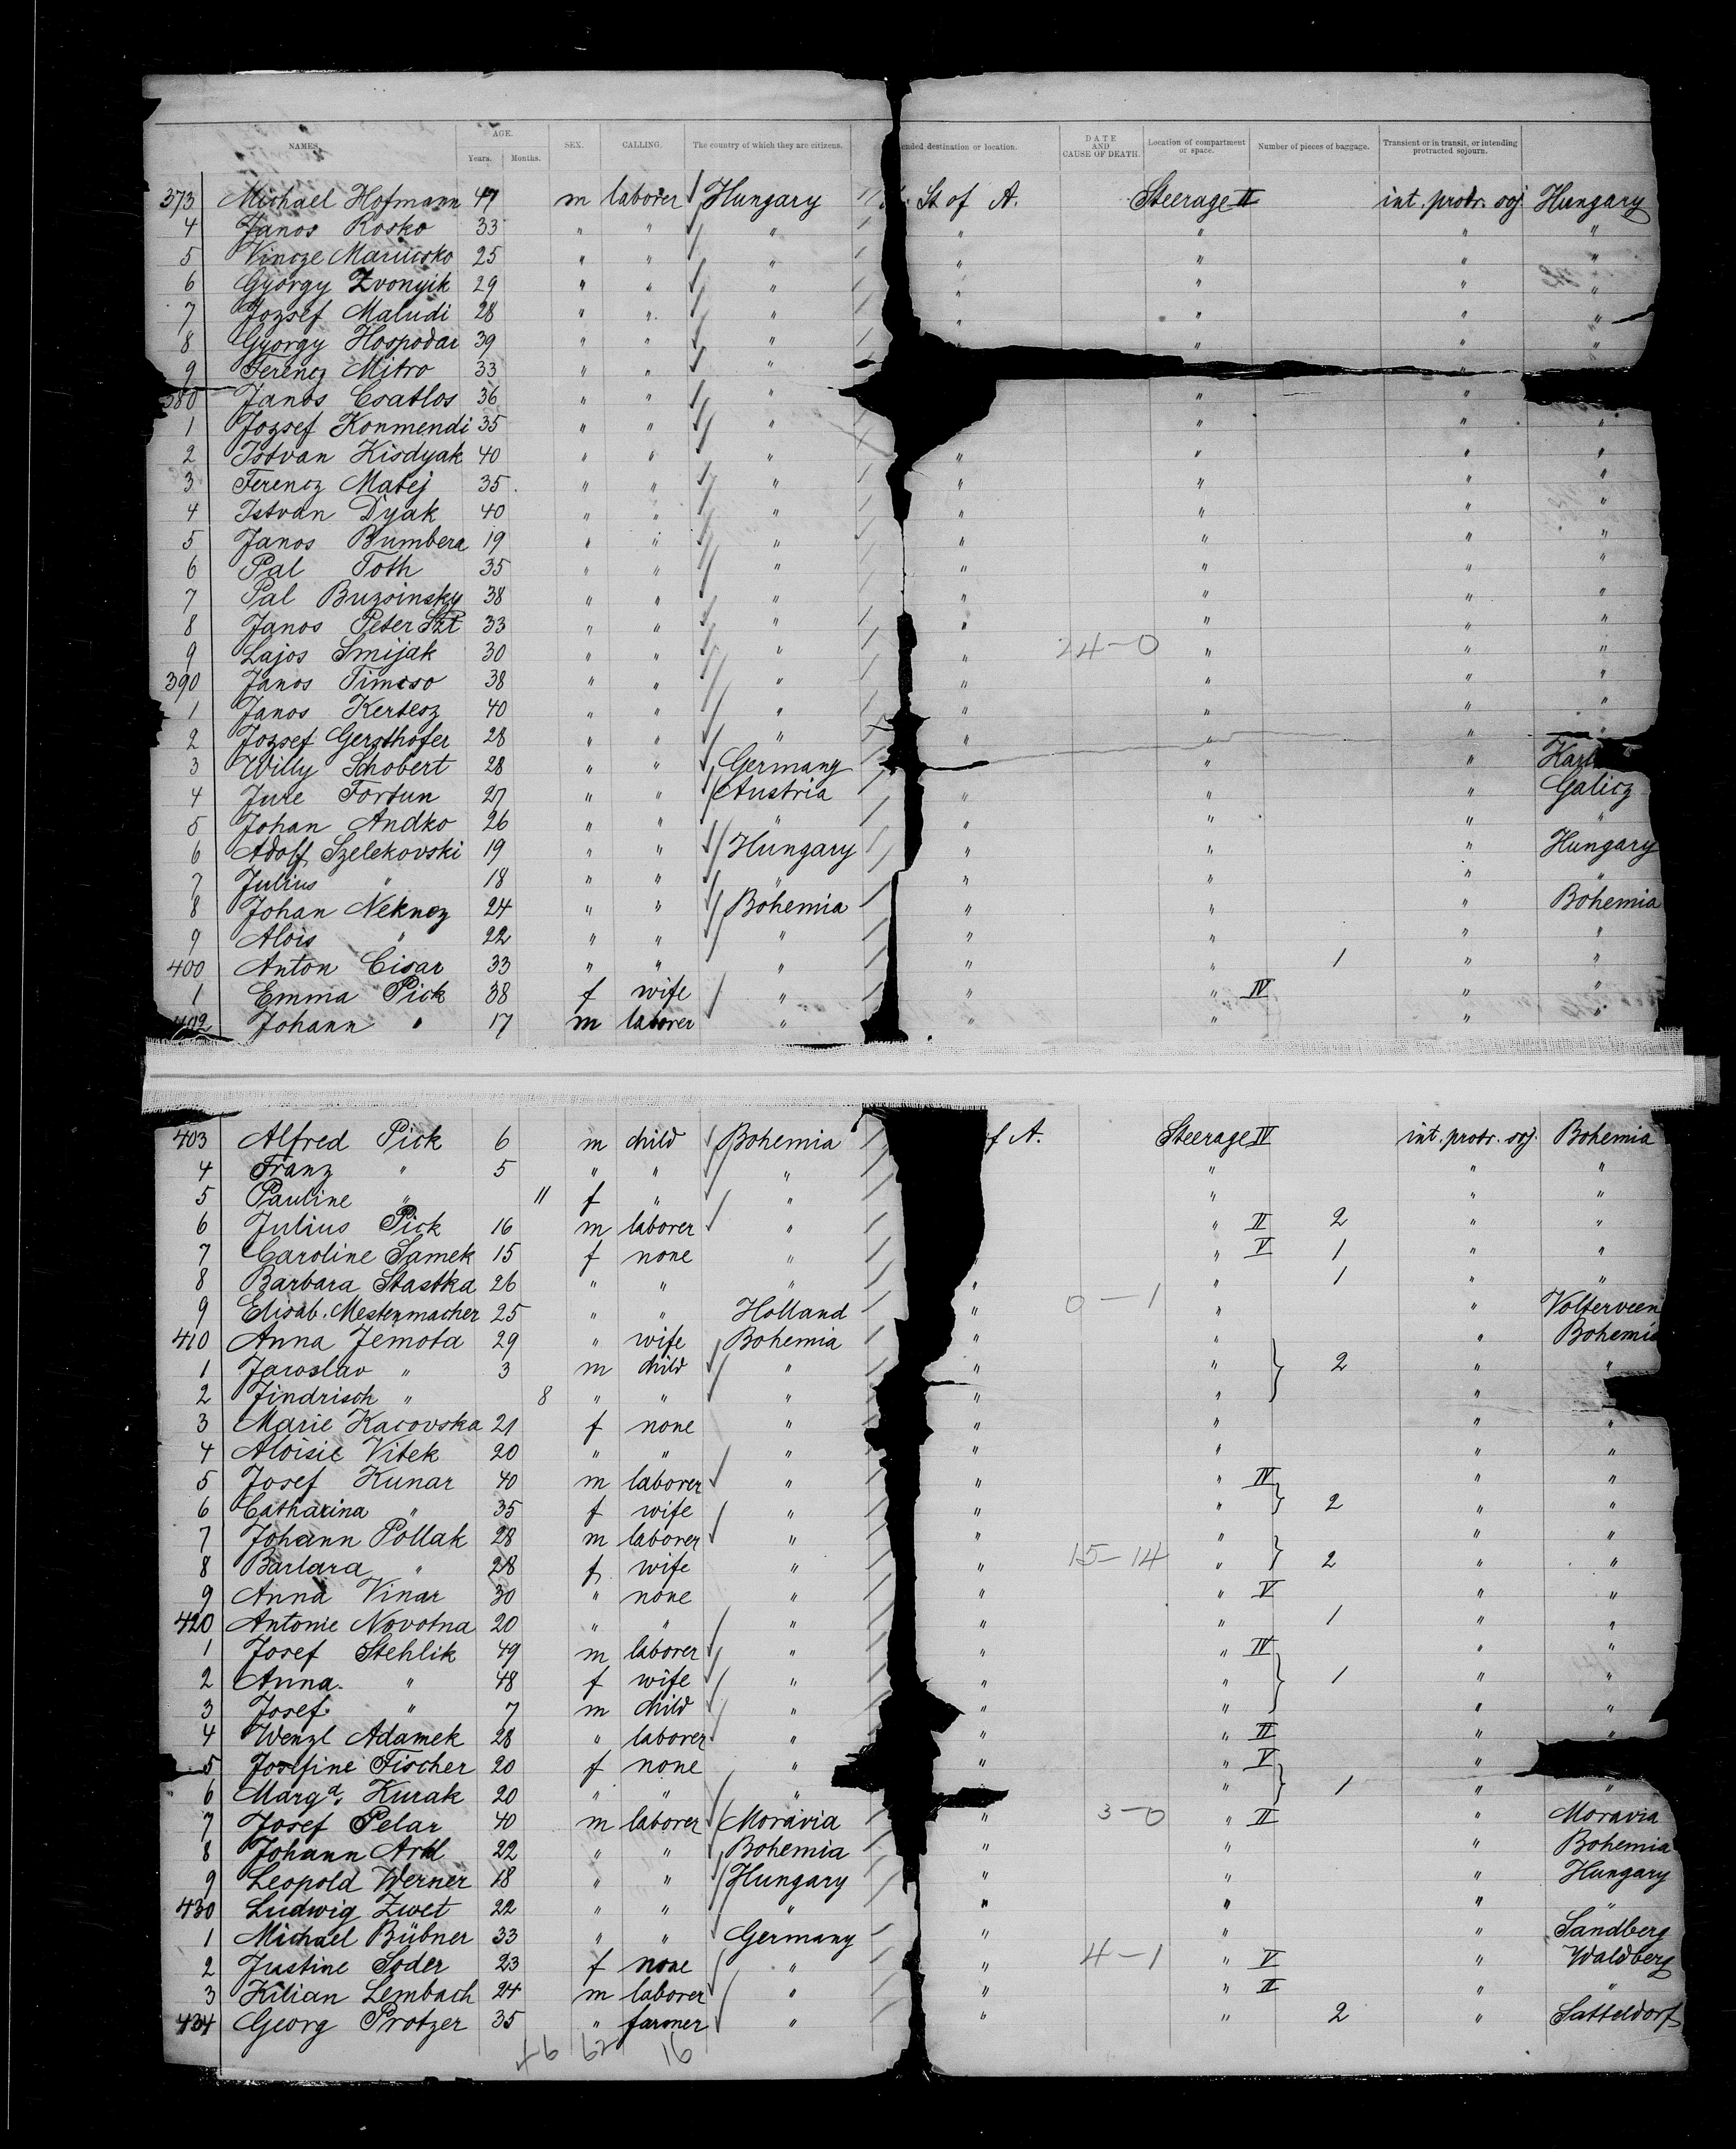 NAMES. AGE. Years. Months. SEX. CALLING. The country of which they are citizens. ended destination or location. DATE AND CAUSE OF DEATH. Location of compartment or space. Number of pieces of baggage. Transient or in transit, or intending protracted sojourn.
373 Michael Hofmann 47 m laborer Hungary St of A. Steerage II int. protr. soj. Hungary
4 Janos Rosko 33 " " " " " " "
5 Vincze Mariicsko 25 " " " " " " "
6 György Zvonyik 29 " " " " " " "
7 Jozsef Maludi 28 " " " " " " "
8 György Hospodar 39 " " " " " " "
9 Ferencz Mitro 33 " " " "
380 Janos Csatlos 36 " " " " "
1 Jozsef Konmendi 35 " " " " " "
2 Istvan Kisdyak 40 " " " " " " "
3 Ferencz Matej 35 " " " " " " "
4 Istvan Dyak 40 " " " " " " "
5 Janos Bumbera 19 " " " " " " "
6 Pal Toth 35 " " " " " " "
7 Pal Buzsinszky 38 " " " " " " "
8 Janos Peter Szt 33 " " " " " " "
9 Lajos Smijak 30 " " " " 24-0 " " "
390 Janos Timcso 38 " " " " " " "
1 Janos Kertesz 40 " " " " " " "
2 Jozsef Gersthofer 28 " " " " " " "
3 Willy Schobert 28 " " Germany " " Karl
4 Jure Fortun 27 " " Austria " " " Galicz
5 Johan Andko 26 " " " " " " "
6 Adolf Szelekovski 19 " " Hungary " " " Hungary
7 Julius " 18 " " " " " " "
8 Johan Neknez 24 " " Bohemia " " " Bohemia
9 Alois " 22 " " " " " " "
400 Anton Cisar 33 " " " " " 1 " "
1 Emma Pick 38 f wife " " " IV " "
402 Johann " 17 m laborer " " " " "
403 Alfred Pick 6 m child Bohemia f A. Steerage IV int. protr. soj. Bohemia
4 Franz " 5 " " " " " "
5 Pauline " 11 f " " " " "
6 Julius Pick 16 m laborer " " II 2 " "
7 Caroline Samek 15 f none " " V 1 " "
8 Barbara Stastka 26 " " " " " 1 " "
9 Elisab. Mestenmacher 25 " " Holland " 0-1 " " Volterveen
410 Anna Jemota 29 " wife Bohemia " " " Bohemia
1 Jaroslav " 3 m child " " " 2 " "
2 Jindrisch " 8 " " " " " "
3 Marie Kacovska 21 f none " " " " "
4 Aloisie Vitek 20 " " " " " " "
5 Josef Kunar 40 m laborer " " " IV " "
6 Catharina " 35 f wife " " " 2 " "
7 Johann Pollak 28 m laborer " " " " "
8 Barbara " 28 f wife " " 15-14 " 2 " "
9 Anna Vinar 30 " none " " " V " "
420 Antonie Novotna 20 " " " " " 1 " "
1 Josef Stehlik 49 m laborer " " " IV " "
2 Anna " 48 f wife " " " 1 " "
3 Josef " 7 m child " " " " "
4 Wenzl Adamek 28 " laborer " " " II " "
5 Josefine Fischer 20 f none " " " V "
6 Margᵃ. Kurak 20 " " " " 1 " "
7 Josef Pelar 40 m laborer Moravia " 3-0 " II " Moravia
8 Johann Artl 22 " " Bohemia " " " Bohemia
9 Leopold Werner 18 " " Hungary " " " Hungary
430 Ludwig Zwet 22 " " " " " " "
1 Michael Bübner 33 " " Germany " " " Sandberg
2 Justine Soder 23 f none " " 4-1 " V " Waldberg
3 Kilian Lembach 24 m laborer " " " II " "
434 Georg Protzer 35 " farmer " " " 2 " Satteldorf
62 16